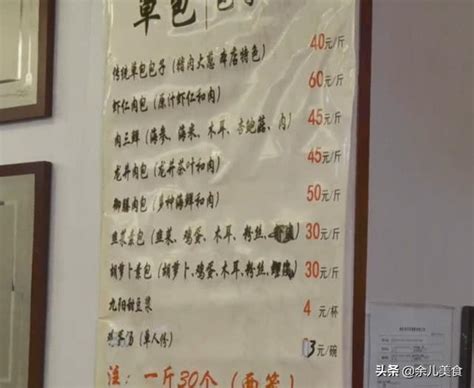 草包包子
传统草包包子（猪肉大葱 本店特色） 40元/斤
虾仁肉包（原汁虾仁和肉） 60元/斤
肉三鲜（海参、海米、木耳、杏鲍菇、肉） 45元/斤
龙井肉包（龙井茶叶和肉） 45元/斤
御膳肉包（多种海鲜和肉） 50元/斤
韭菜素包（韭菜、鸡蛋、木耳、粉丝、） 30元/斤
胡萝卜素包（胡萝卜、鸡蛋、木耳、粉丝、） 30元/斤
九阳甜豆浆 4元/杯
鸡茸汤（单人份） 3元/碗
注：一斤30个（两笼）
头条 @余儿美食